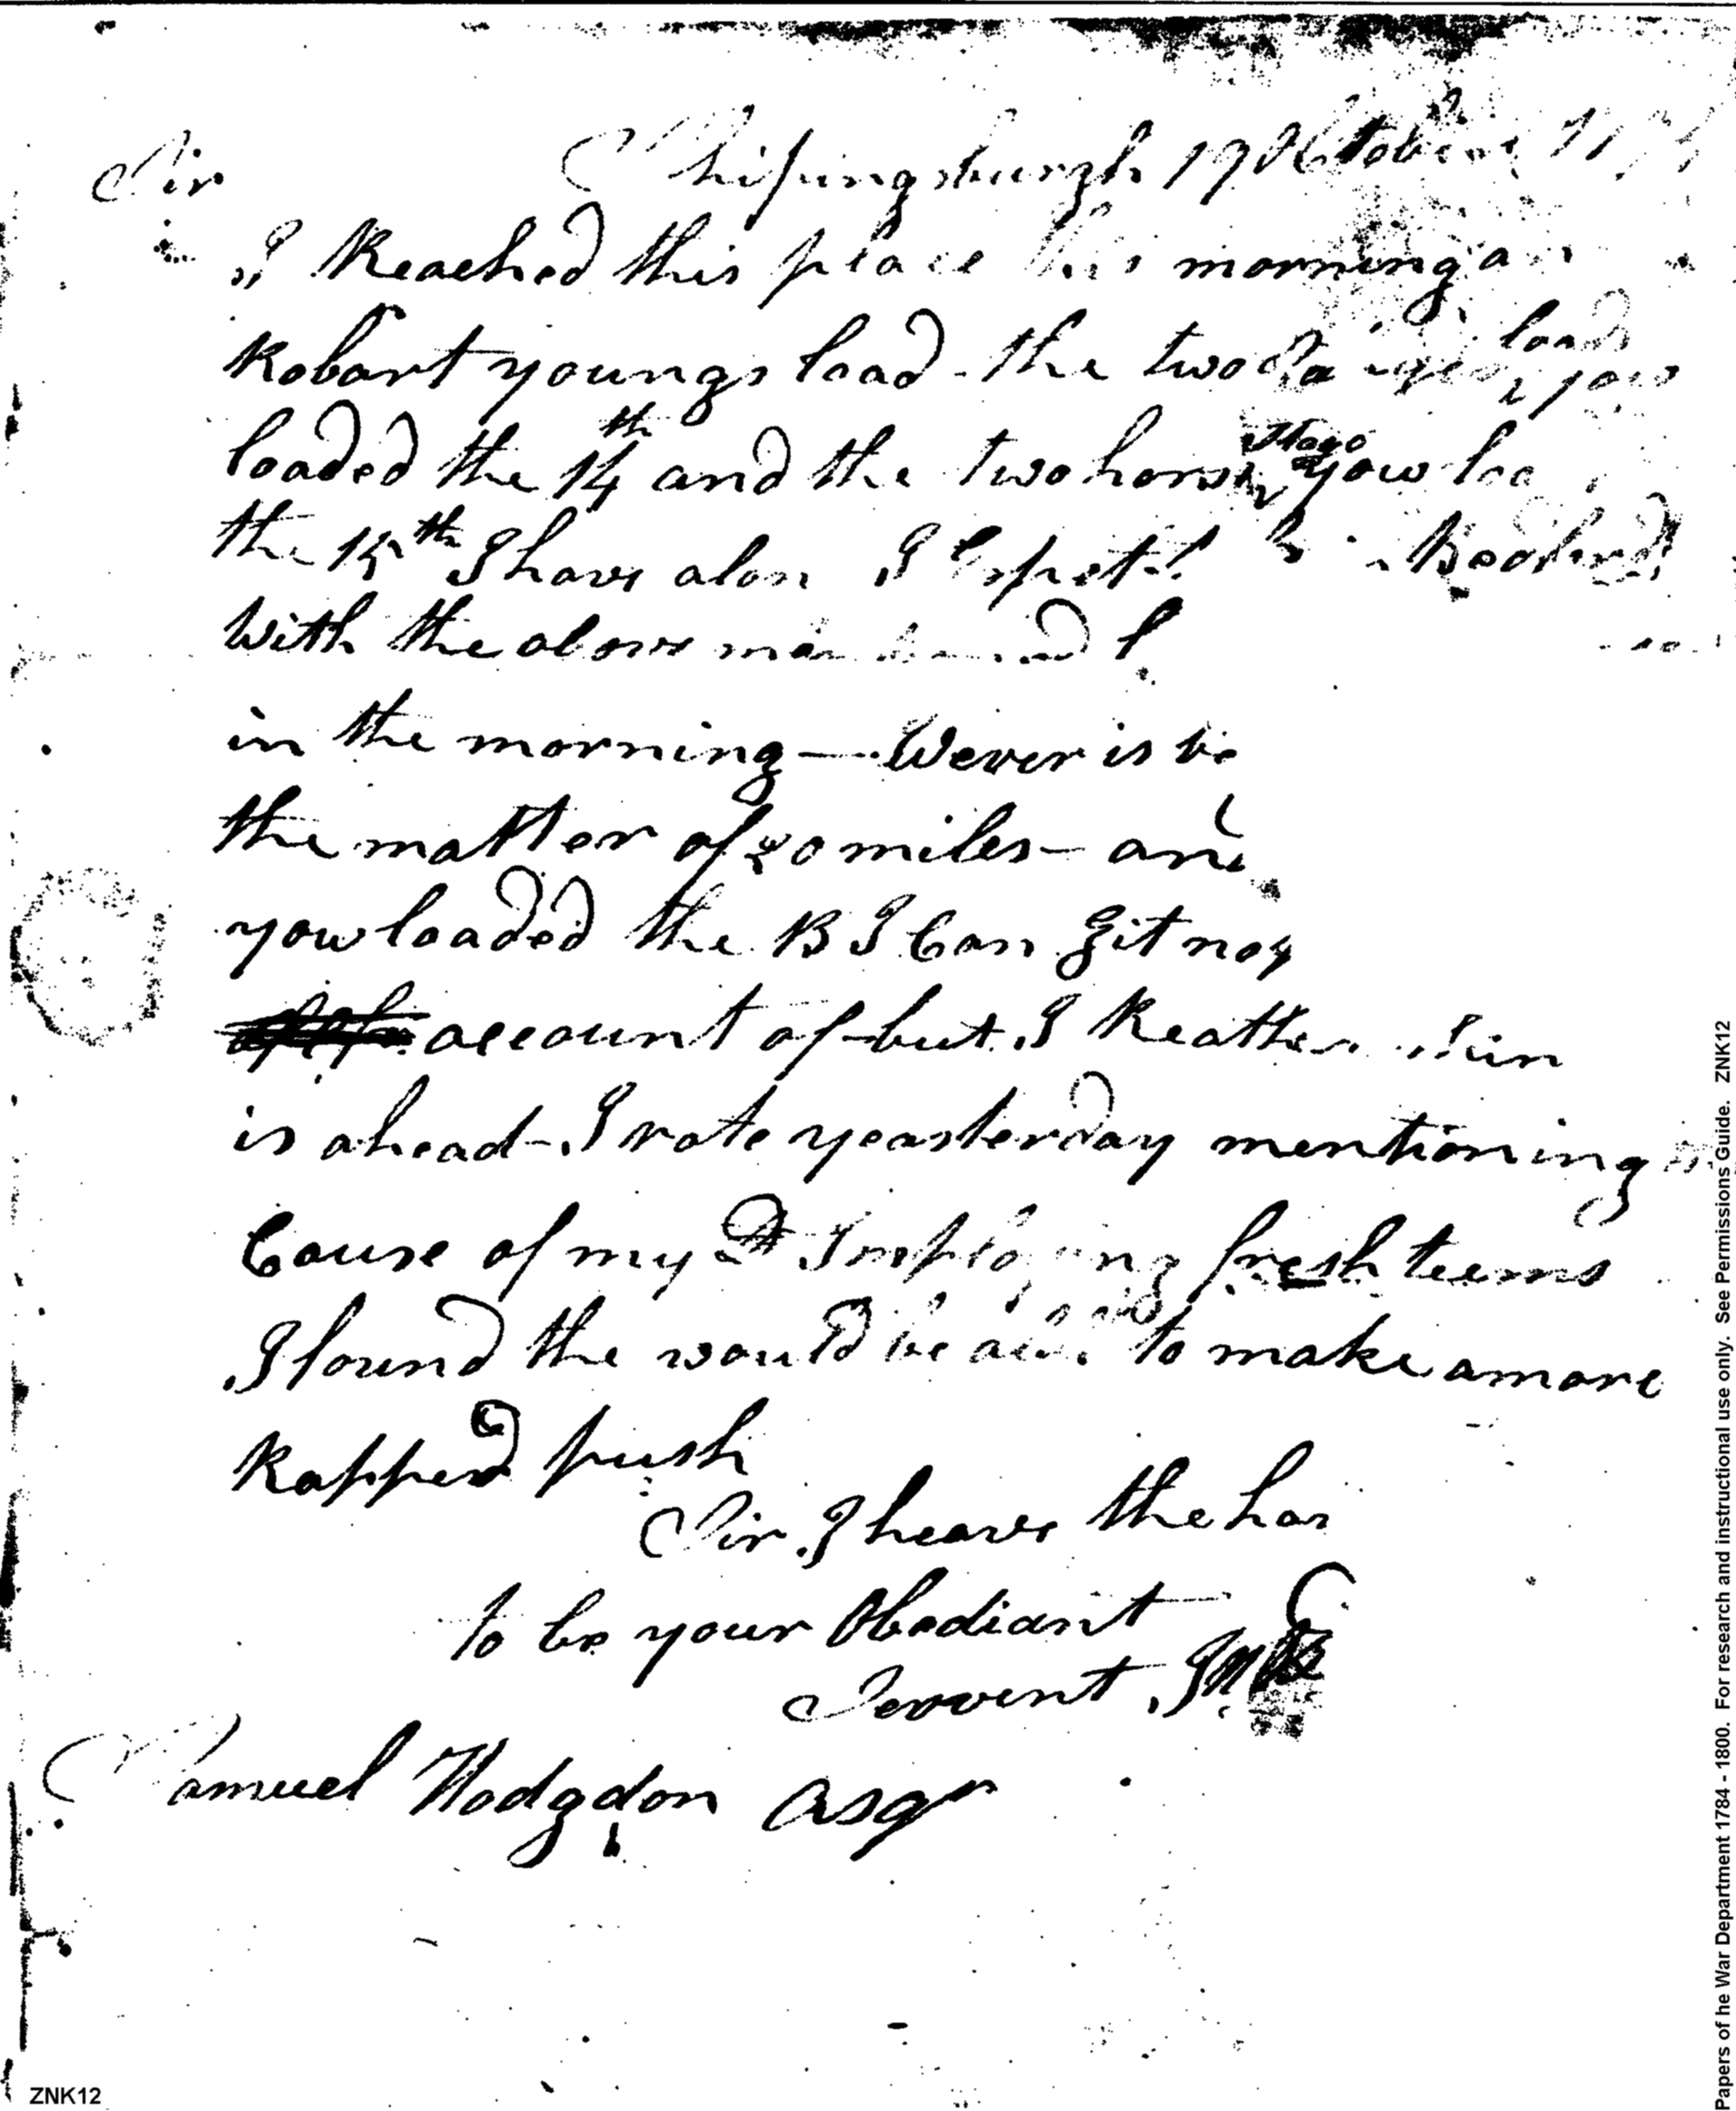 Sir Shipingsburgh 17 October
I Reached this place this morning
Robart youngs load - the two loads yow
loaded the 14th and the two horse Stage yow
the 15th I have alson I Expect Bedford
With the above
in the morning — Wever is be
the matter of 20 miles - and
yow loaded the 13 I Can git no
account of - but I Reatther
is ahead - I rote yeasterday mentioning
Couse of my Imploying fresh teems
I found the would be able to make a more
Rapped push
Sir. I heave the hon
to be your Obediant
Servent
Samuel Hodgdon Esqr
ZNK12
Papers of he War Department 1784 - 1800. For research and instructional use only. See Permissions Guide. ZNK12